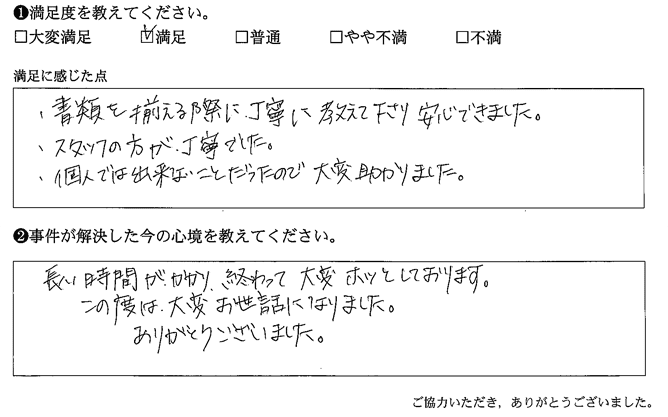 ❶満足度を教えてください。
□大変満足 ☑満足 □普通 □やや不満 □不満
満足に感じた点
・書類を揃える際に、丁寧に教えて下さり安心できました。
・スタッフの方が、丁寧でした。
・個人では出来ないことだったので大変助かりました。
❷事件が解決した今の心境を教えてください。
長い時間がかかり、終わって大変ホッとしております。
この度は、大変お世話になりました。
ありがとうございました。
ご協力いただき，ありがとうございました。